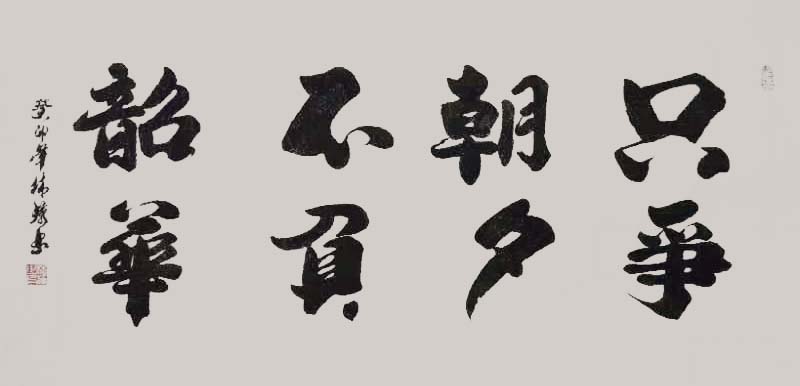 只爭
朝夕
不負
韶華
癸卯年